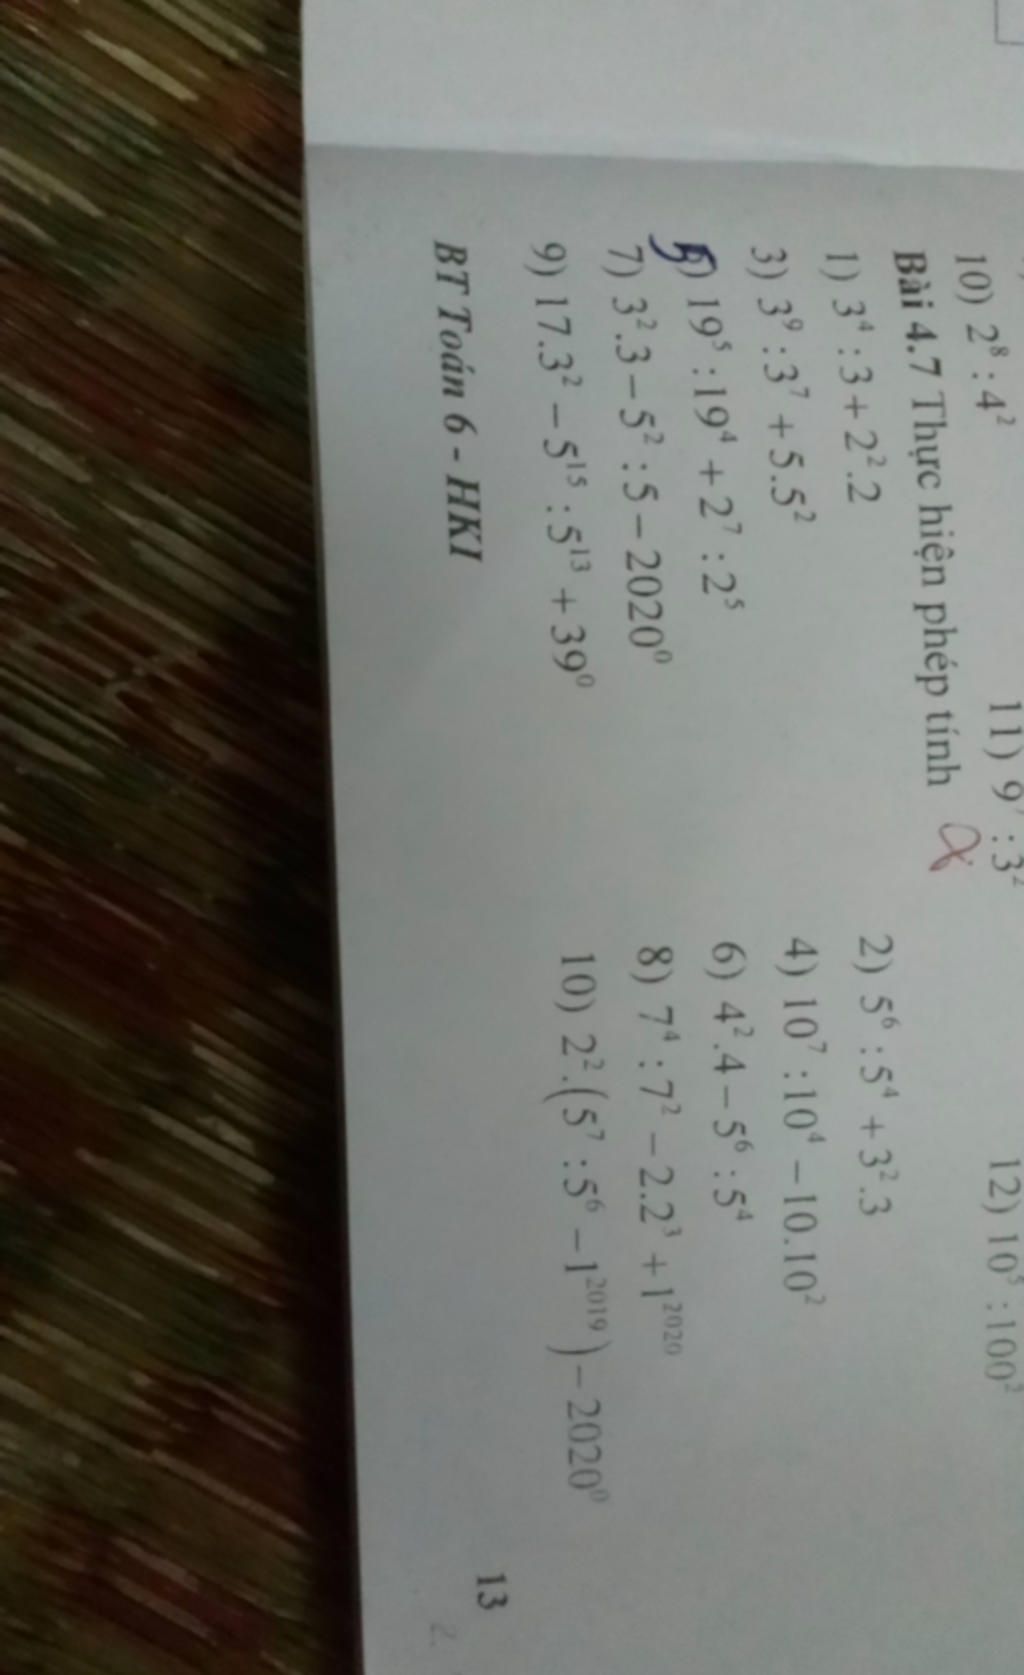 10) 2⁸ : 4² 11) 9⁷ : 3² 12) 10⁵ : 100²
Bài 4.7 Thực hiện phép tính
1) 3⁴ : 3 + 2² . 2 2) 5⁶ : 5⁴ + 3² . 3
3) 3⁹ : 3⁷ + 5 . 5² 4) 10⁷ : 10⁴ − 10 . 10²
5) 19⁵ : 19⁴ + 2⁷ : 2⁵ 6) 4² . 4 − 5⁶ : 5⁴
7) 3² . 3 − 5² : 5 − 2020⁰ 8) 7⁴ : 7² − 2 . 2³ + 1²⁰²⁰
9) 17 . 3² − 5¹⁵ : 5¹³ + 39⁰ 10) 2² . (5⁷ : 5⁶ − 1²⁰¹⁹) − 2020⁰
BT Toán 6 - HKI 13